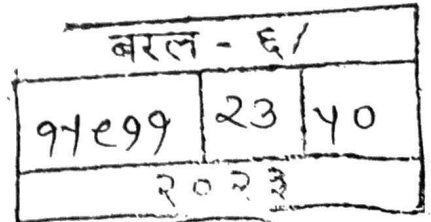 बरल - ६/
१५९११ २३ ५०
२०२३